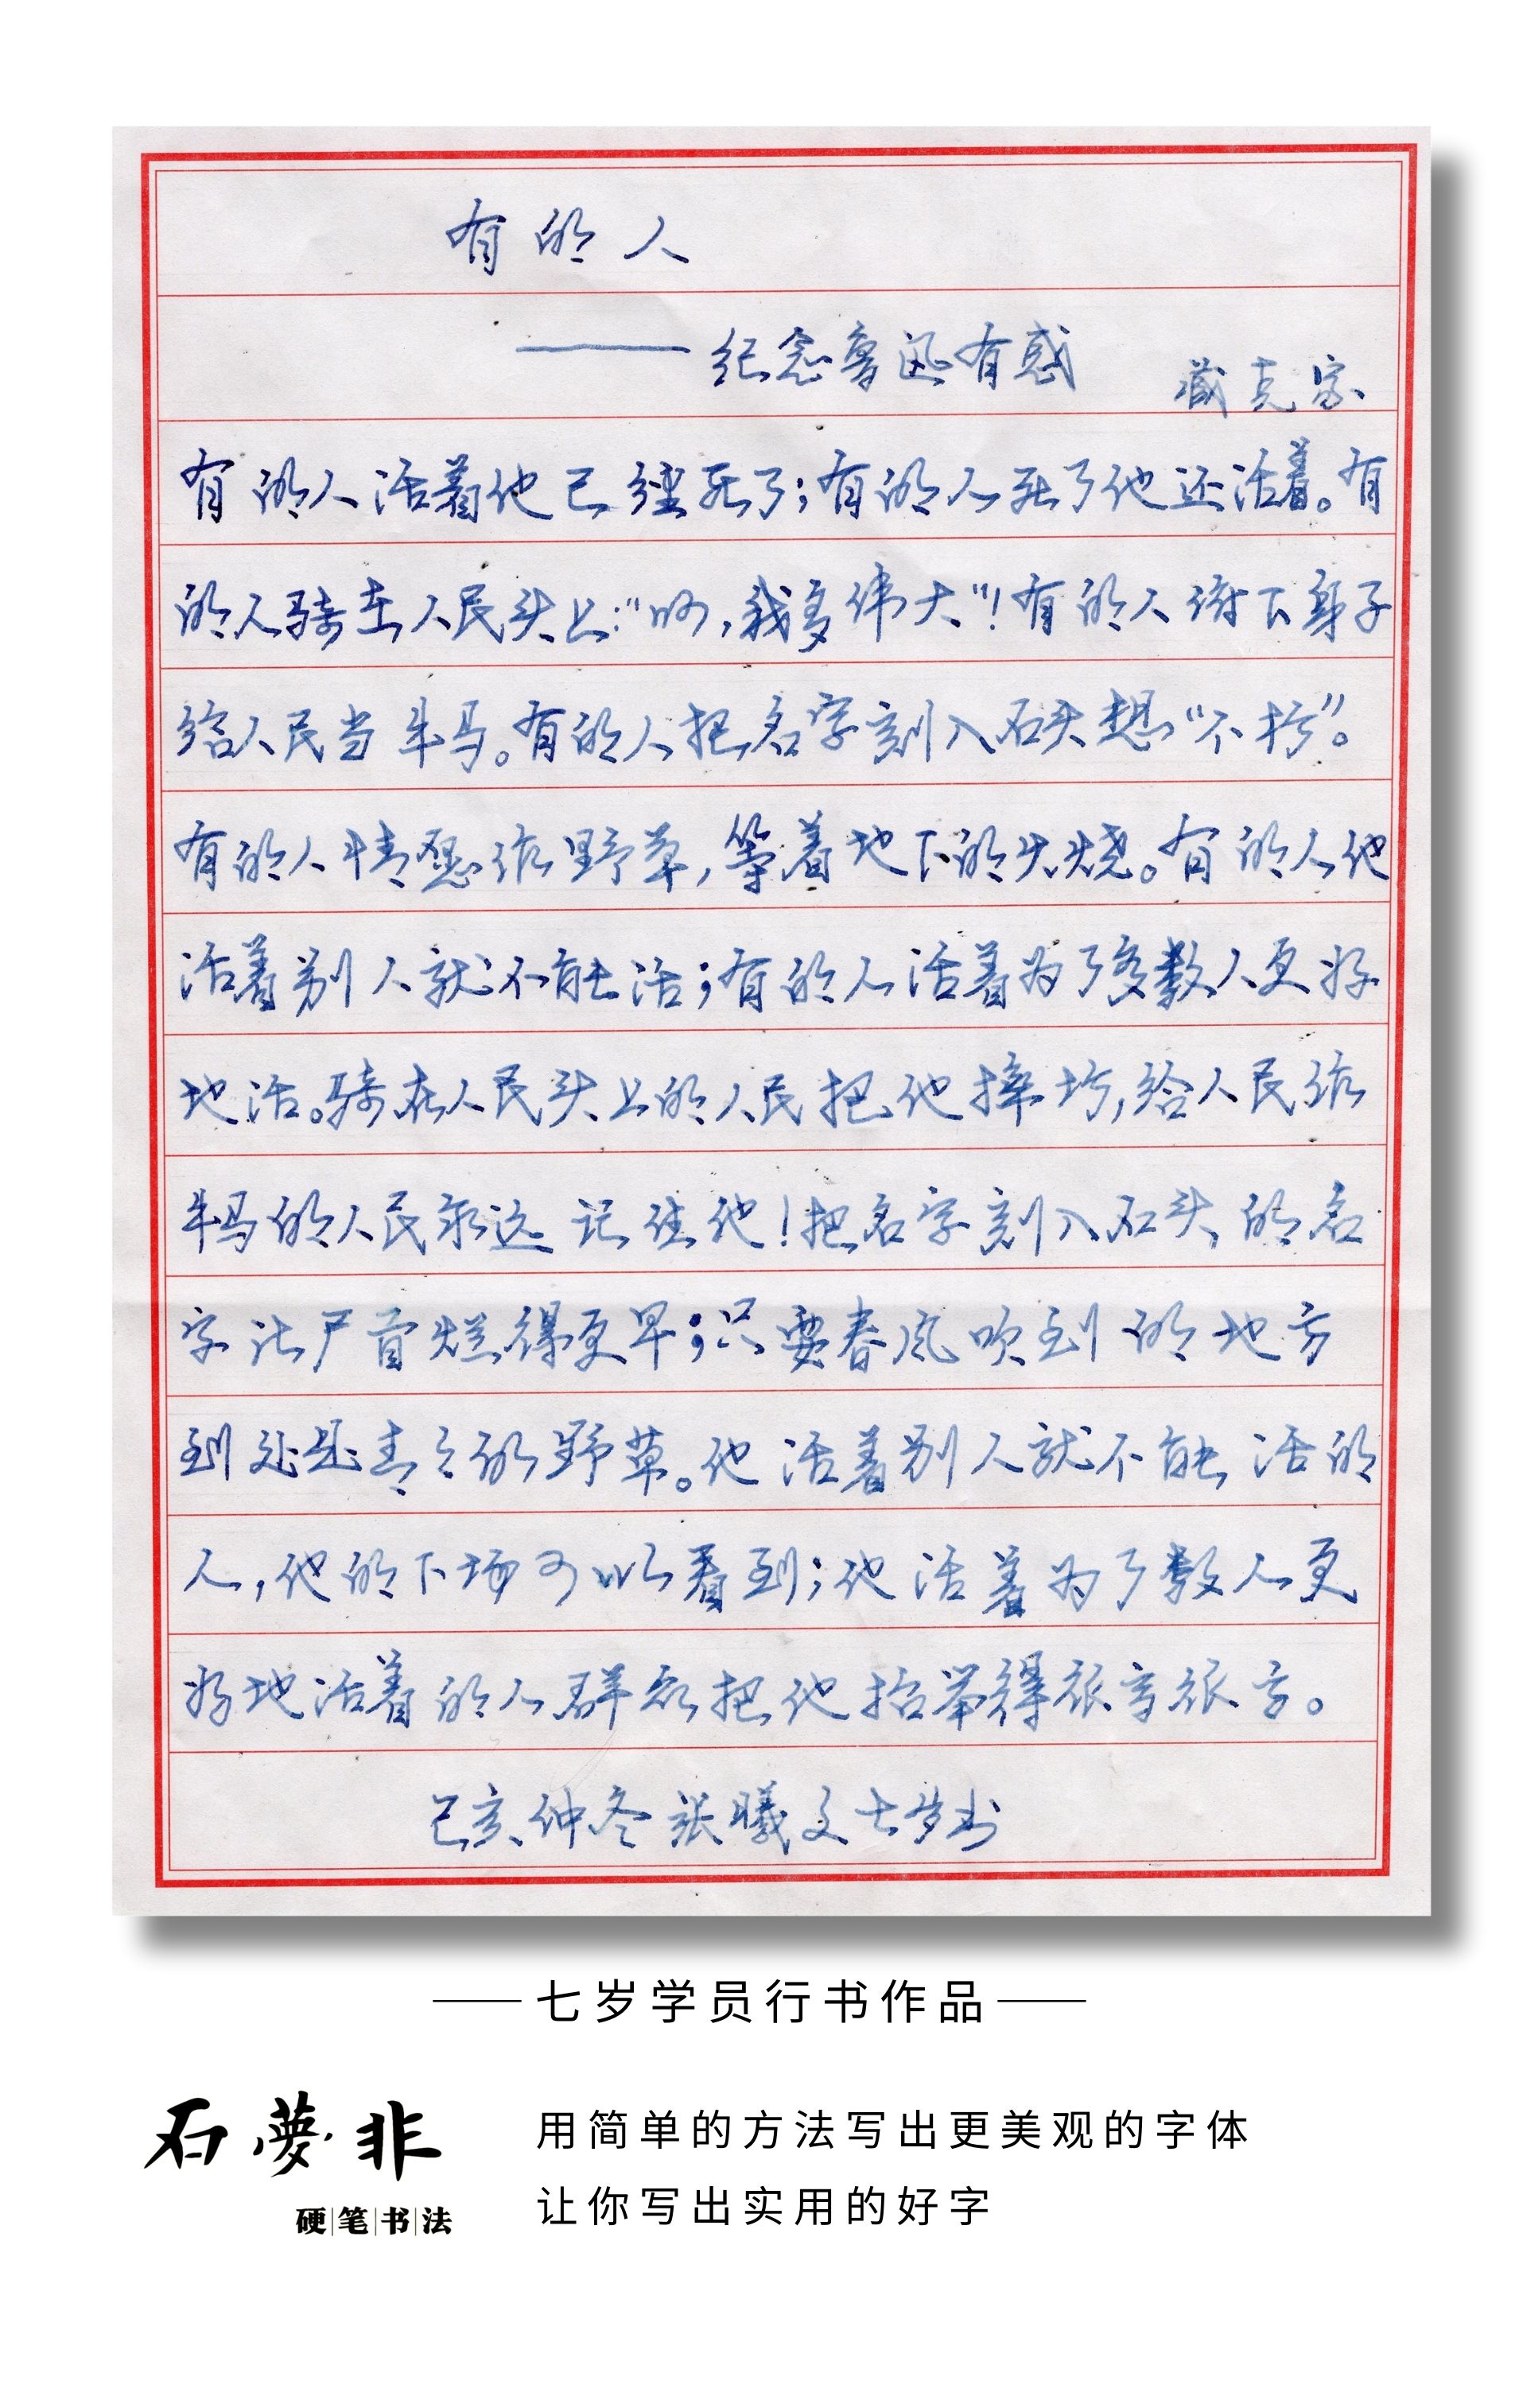 有的人
——纪念鲁迅有感 臧克家
有的人活着他已经死了;有的人死了他还活着。有
的人骑在人民头上:“呵,我多伟大”!有的人俯下身子
给人民当牛马。有的人把名字刻入石头想“不朽”。
有的人情愿作野草,等着地下的火烧。有的人他
活着别人就不能活;有的人活着为了多数人更好
地活。骑在人民头上的人民把他摔垮,给人民作
牛马的人民永远记住他!把名字刻入石头的名
字比尸首烂得更早;只要春风吹到的地方
到处是青青的野草。他活着别人就不能活的
人,他的下场可以看到;他活着为了数人更
好地活着的人群众把他抬举得很高很高。
己亥仲冬张曦文七岁书
——七岁学员行书作品——
石夢非
硬|笔|书|法
用简单的方法写出更美观的字体
让你写出实用的好字